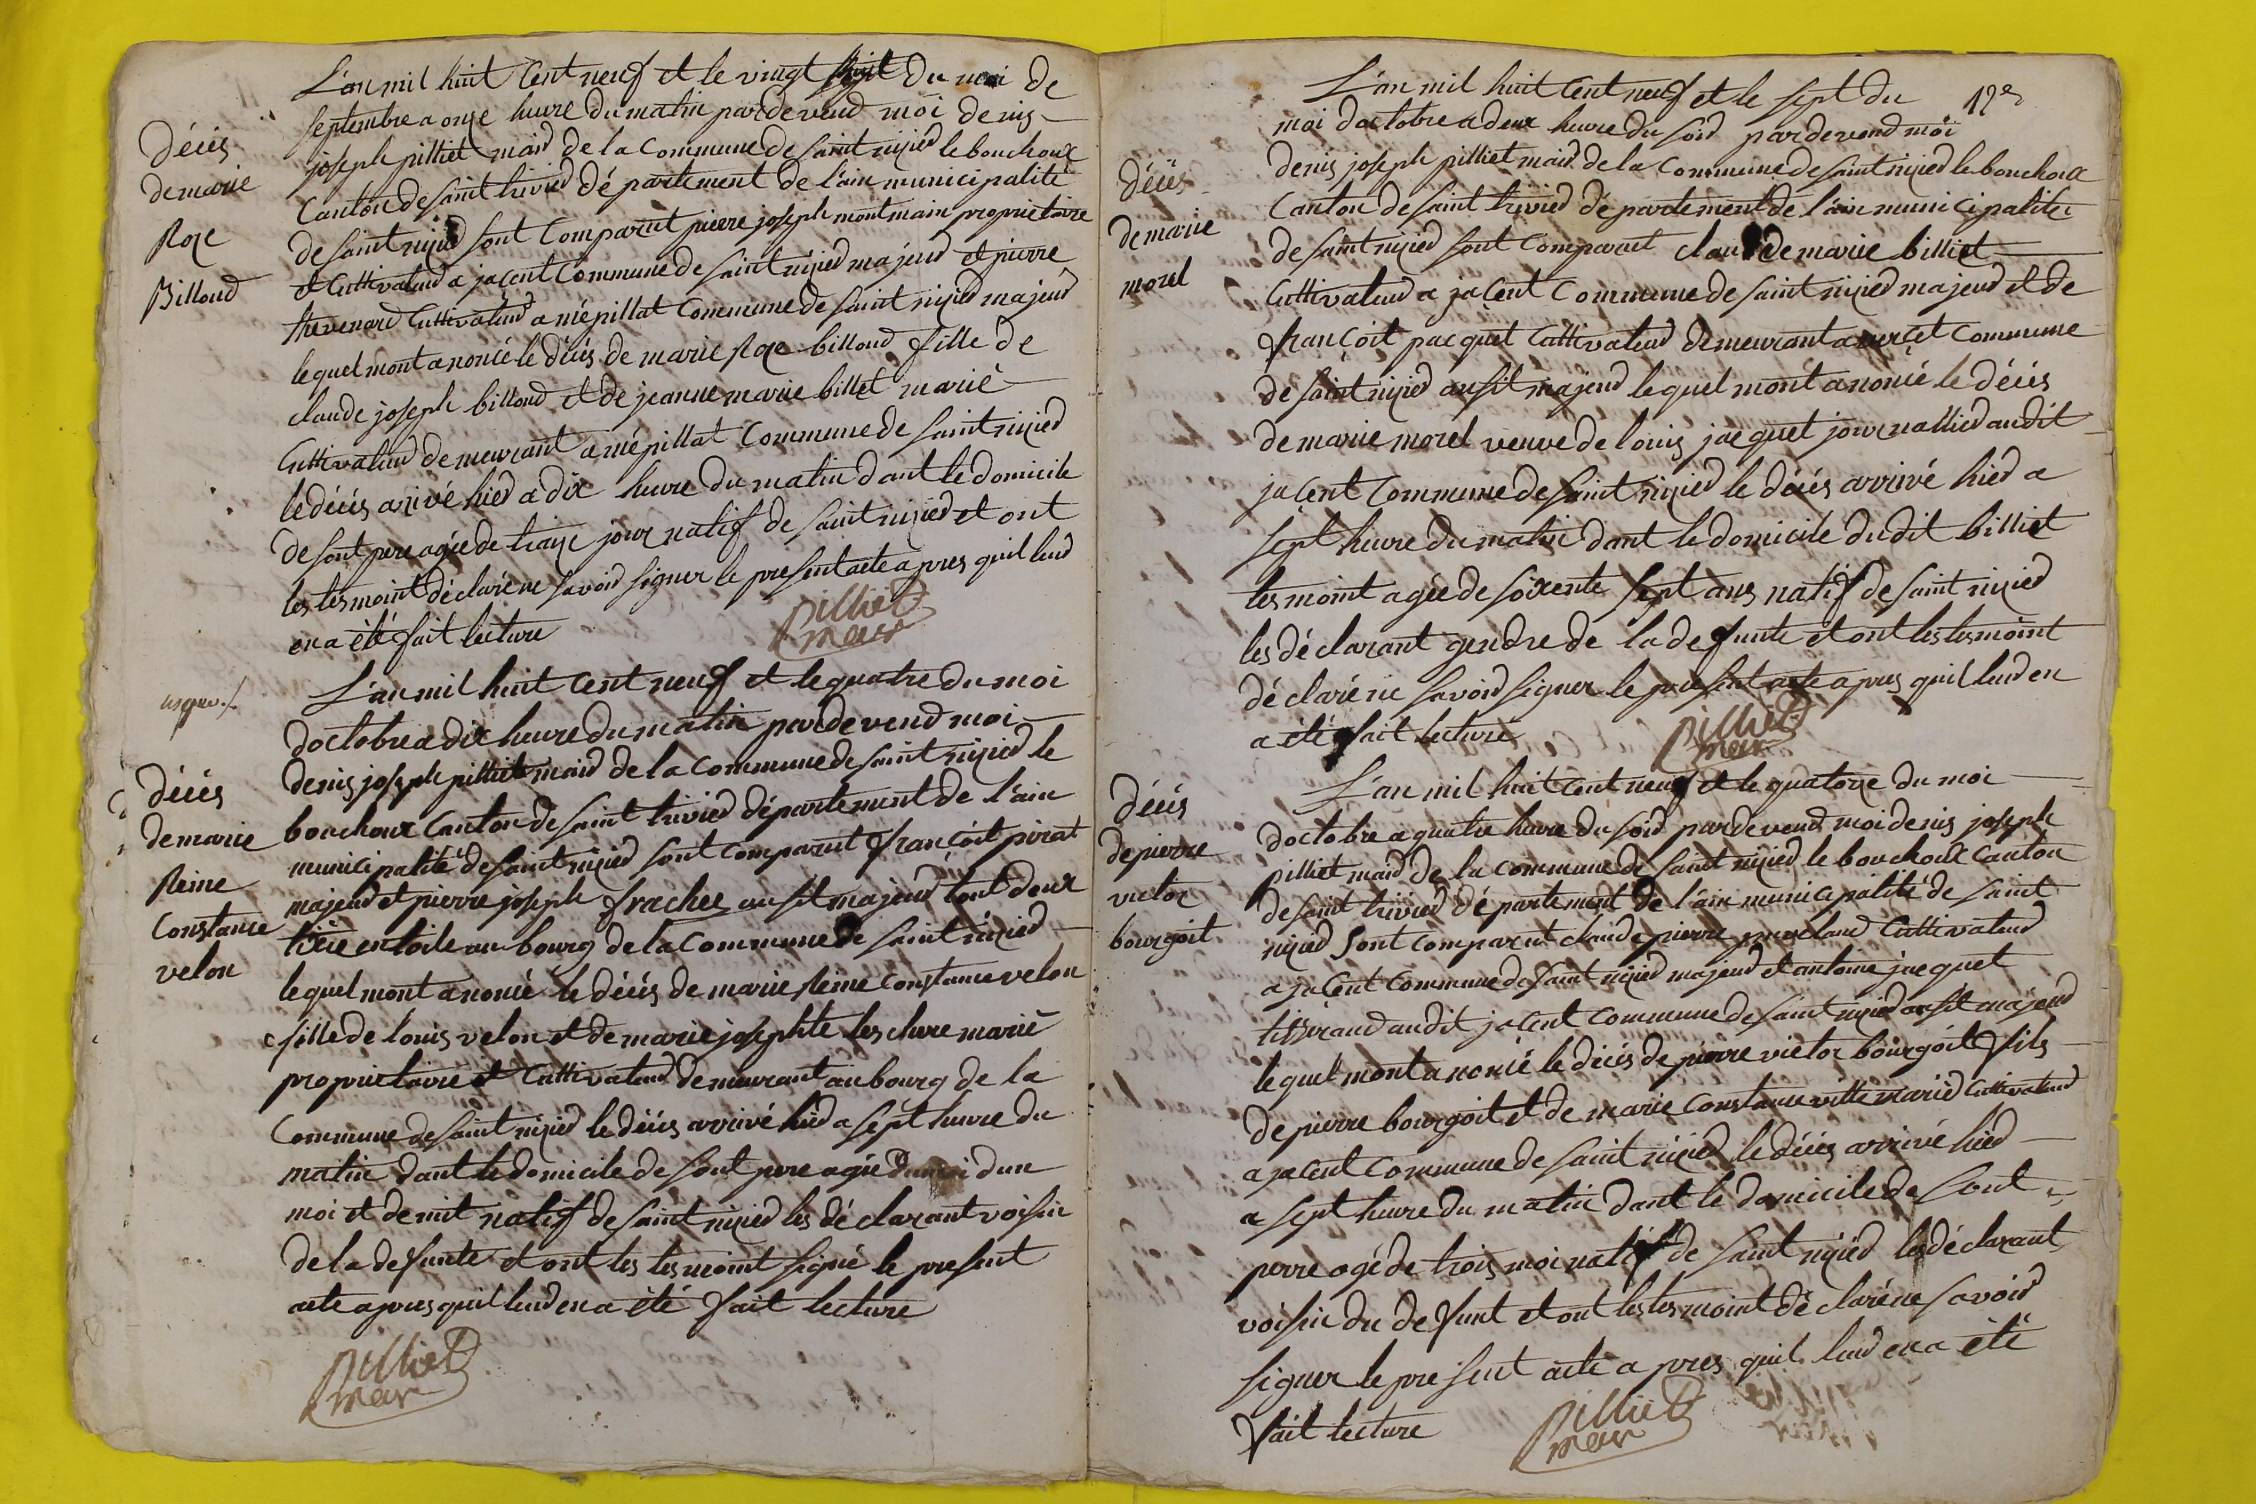 décés
de marie
Roze
Billoud
L'an mil huit Cent neuf et le vingt huit du moi de
septembre a onze heure du matin pardevend moi denis
joseph pilliet maid de la Commune de saint nizied le bouchoux
Canton de saint trivied département de l'ain municipalité
de saint nizied sont Comparut pierre joseph montmain proprietaire
et Cuttivateud a jacent Commune de saint nizied majeud et pierre
thevenard Cuttivateud a mépillat Commune de saint nizied majeud
lequel mont anoncé le décés de marie Roze billoud fille de
claude joseph billoud et de jeanne marie billet marié
Cuttivateud demeurant a mépillat Commune de saint nizied
le décés arivé hied a dix heure du matin dant le domicile
de sont pere agée de traize jour natif de saint nizied et ont
les tesmoint déclaré ne savoid signer le present acte apres quil leud
en a été fait lecture
Pilliet
mair
décés
de marie
Reine
Constance
velon
L'an mil huit Cent neuf et le quatre du moi
doctobre a dix heure du matin pardevend moi
denis joseph pilliet maid de la Commune de saint nizied le
bouchoux Canton de saint trivied département de l'ain
municipalité de saint nizied sont Comparut françoit pirat
majeud et pierre joseph frachet ausit majeud tout deux
tixié en toile au bourg de la Commune de saint nizied
lequel mont anoncé le décés de marie Reine Constance velon
fille de louis velon et de marie josephte lesclure marié
proprietaire et Cuttivateud demeurant au bourg de la
Commune de saint nizied le décés arrivé hied a sept heure du
matin dant le domicile de sont pere agée dun
moi et demit natif de saint nizied les déclarant voisin
de la defunte et ont les tesmoint signé le present
acte apres quil leud en a été fait lecture
Pilliet
mair
12e
décés
de marie
morel
L'an mil huit Cent neuf et le sept du
moi doctobre a deux heure du soid pardevend moi
denis joseph pilliet maid de la Commune de saint nizied le bouchoux
Canton de saint trivied département de l'ain municipalité
de saint nizied sont Comparut claude marie billiet
Cuttivateud a jacent Commune de saint nizied majeud et de
françoit pacquet Cuttivateud demeurant a Commune
de saint nizied ausit majeud lequel mont anoncé le décés
de marie morel veuve de louis jacquet journallied audit
jacent Commune de saint nizied le décés arrivé hied a
sept heure du matin dant le domicile dudit billiet
tesmoint agée de soixente sept ans natif de saint nizied
les déclarant gendre de la defunte et ont les tesmoint
déclaré ne savoid signer le present acte apres quil leud en
a été fait lecture
Pilliet
mair
décés
de pierre
victor
bourgoit
L'an mil huit Cent neuf et le quatorze du moi
doctobre a quatre heure du soid pardevend moi denis joseph
pilliet maid de la Commune de saint nizied le bouchoux Canton
de saint trivied département de l'ain municipalité de saint
nizied sont Comparut claude pierre Cuttivateud
a jacent Commune de saint nizied majeud et antoine jacquet
tisseraud audit jacent Commune de saint nizied ausit majeud
lequel mont anoncé le décés de pierre victor bourgoit fils
de pierre bourgoit et de marie Constance vitte marié Cuttivateud
a jacent Commune de saint nizied le décés arrivé hied
a sept heure du matin dant le domicile de sont
perre agé de trois moi natif de saint nizied les déclarant
voisin du defunt et ont les tesmoint déclaré ne savoid
signer le present acte apres quil leud en a été
fait lecture
Pilliet
mair